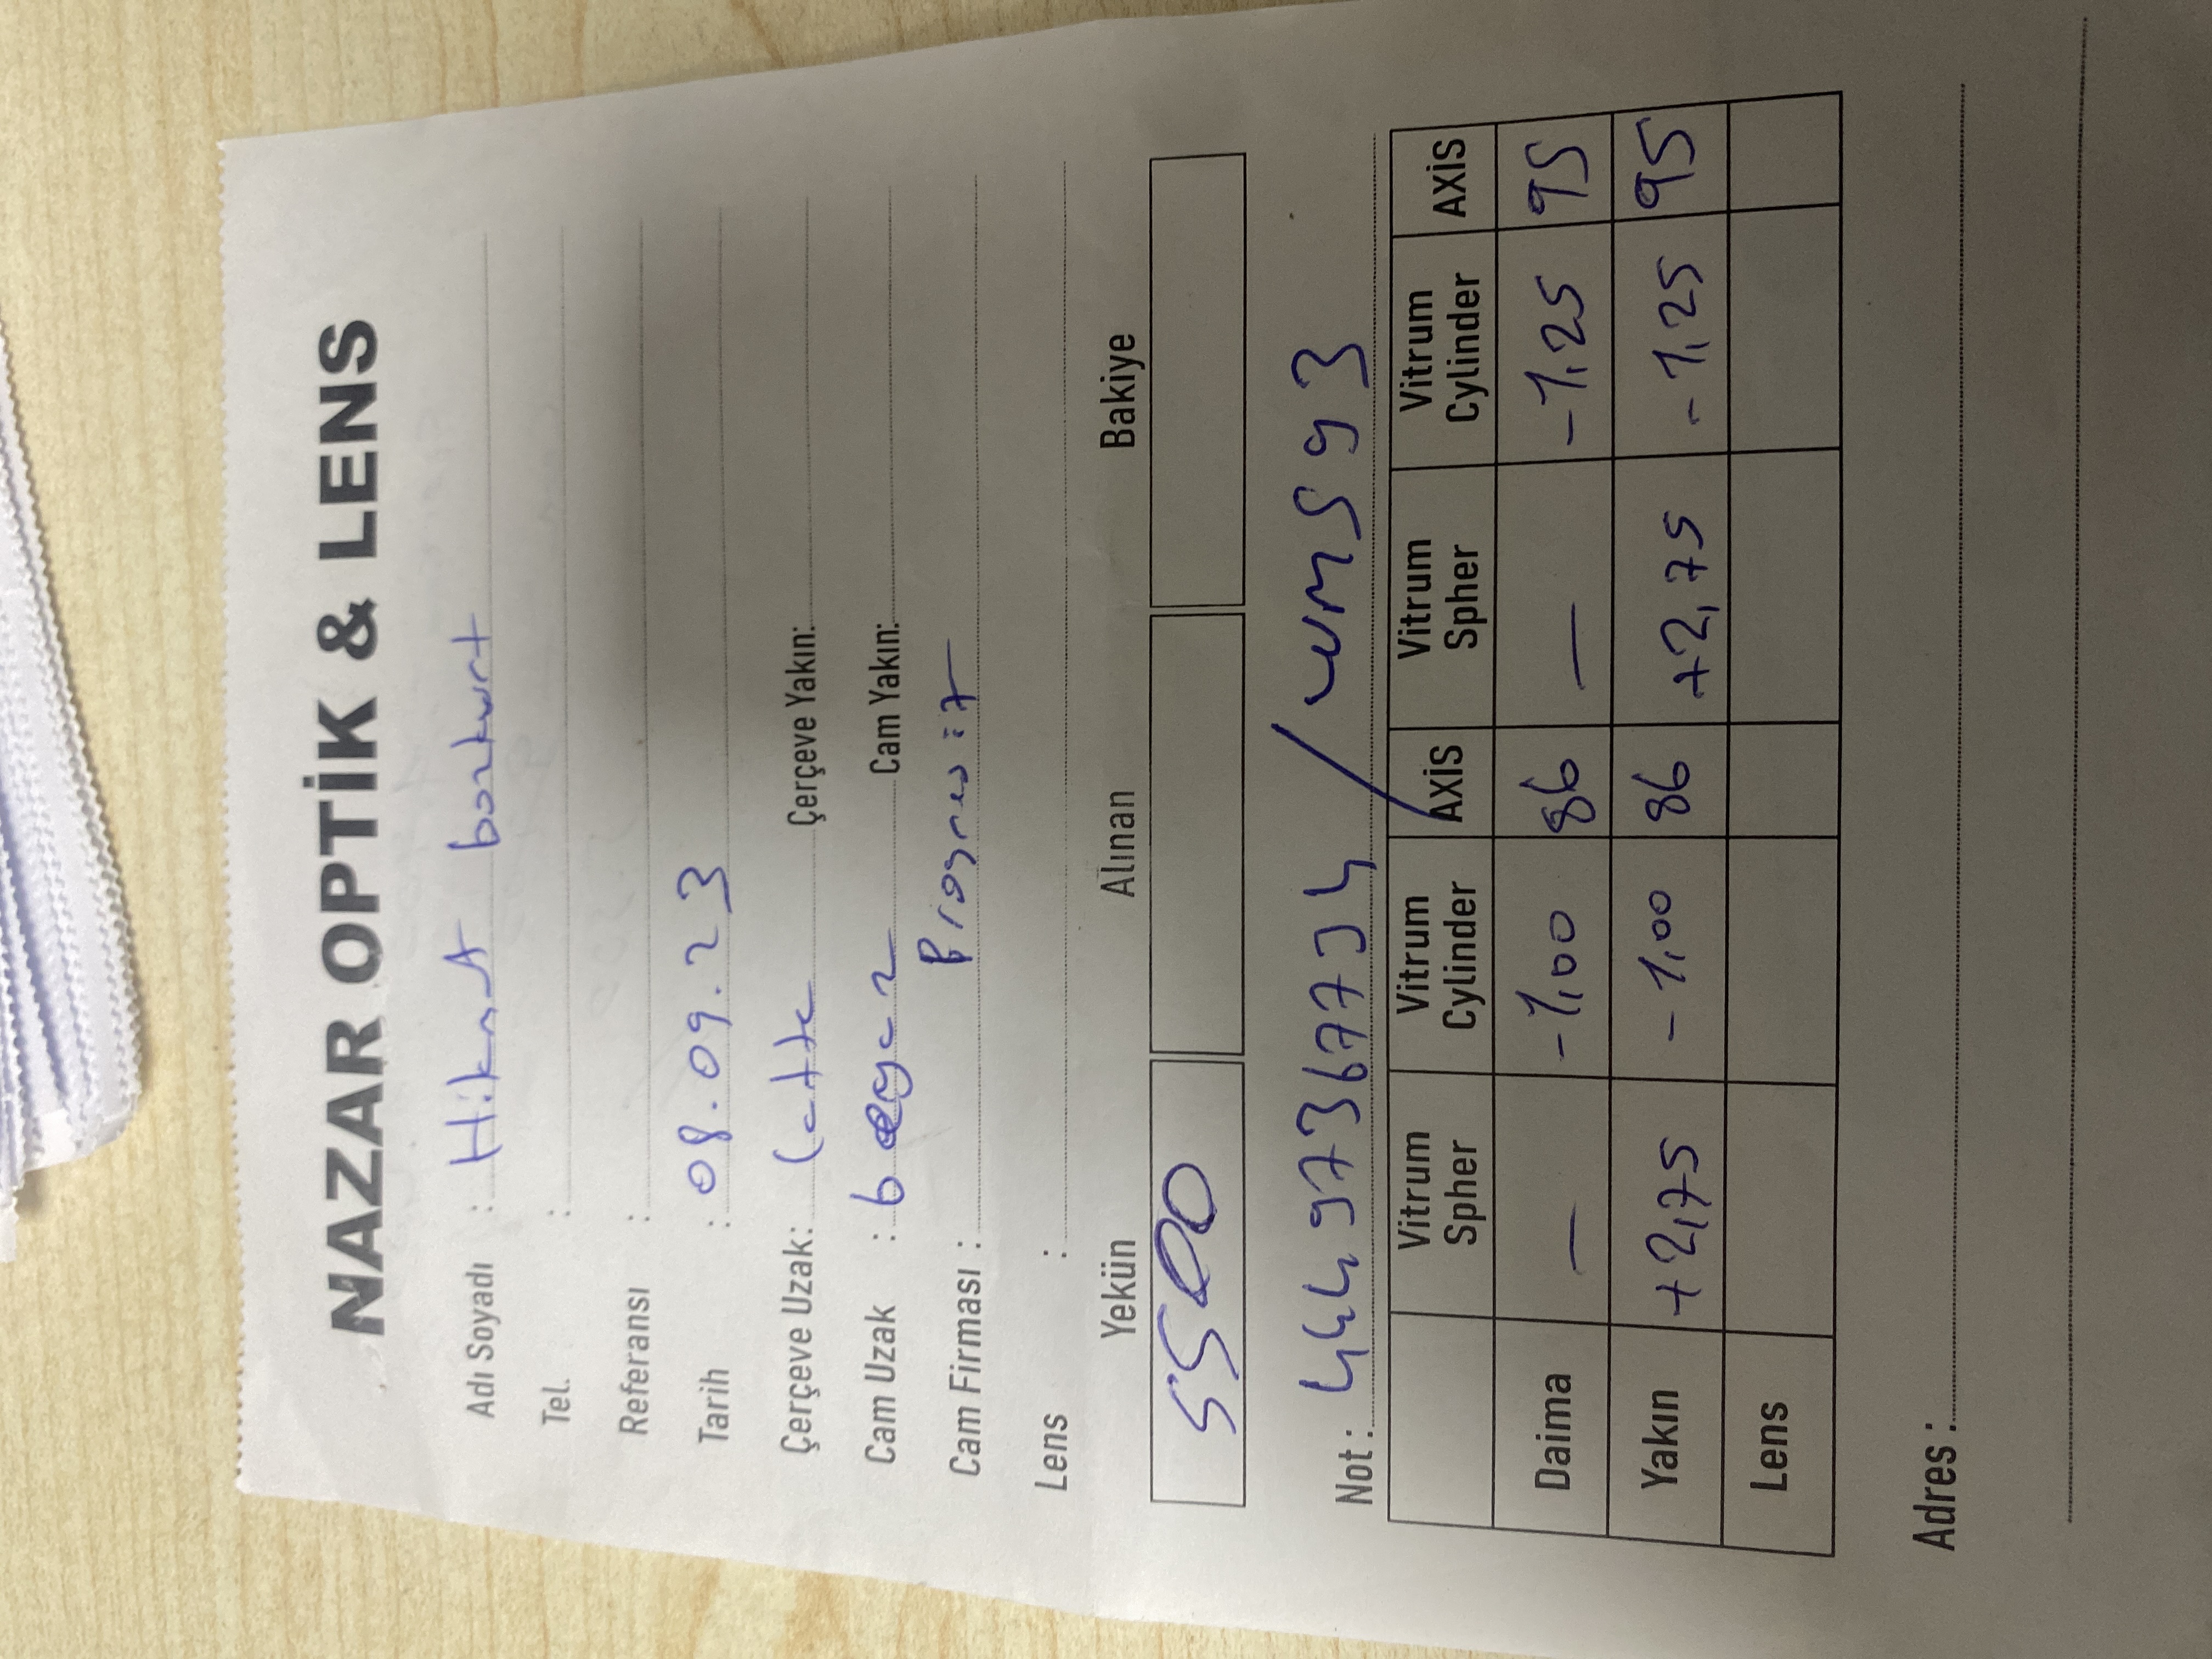 NAZAR OPTİK & LENS
Adı Soyadı : Hikmet bozkurt
Tel. :
Referansı :
Tarih : 08.09.23
Çerçeve Uzak: Çerçeve Yakın:
Cam Uzak : beyaz Cam Yakın:
Progresif
Cam Firması :
Lens :
Yekün Alınan Bakiye
5500
Not : 44497367794 / WMS93
Vitrum Spher Vitrum Cylinder AXİS Vitrum Spher Vitrum Cylinder AXİS
Daima — -1,00 86 — -1,25 95
Yakın +2,75 -1,00 86 +2,75 -1,25 95
Lens
Adres :